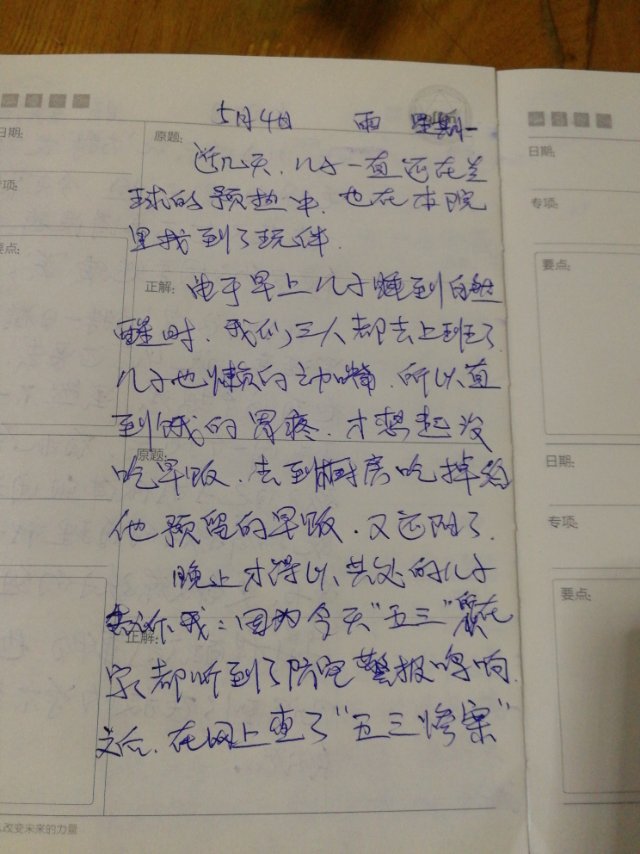 5月4日 雨 星期一
日期:
原题:
近几天,儿子一直还在兰
球的预热中,也在本院
里找到了玩伴.
专项:
要点:
正解:
由于早上儿子睡到自然
醒时,我们三人都去上班了
儿子也懒的动嘴,所以直
到饿的胃疼,才想起没
原题:
吃早饭,去到厨房吃掉给
他预留的早饭,又还附了.
晚上才得以共处的儿子
我:因为今天"五三"
正解:
家都听到了防空警报鸣响.
之后,在网上查了"五三惨案"
改变未来的力量
日期:
专项:
要点:
日期:
专项:
要点: